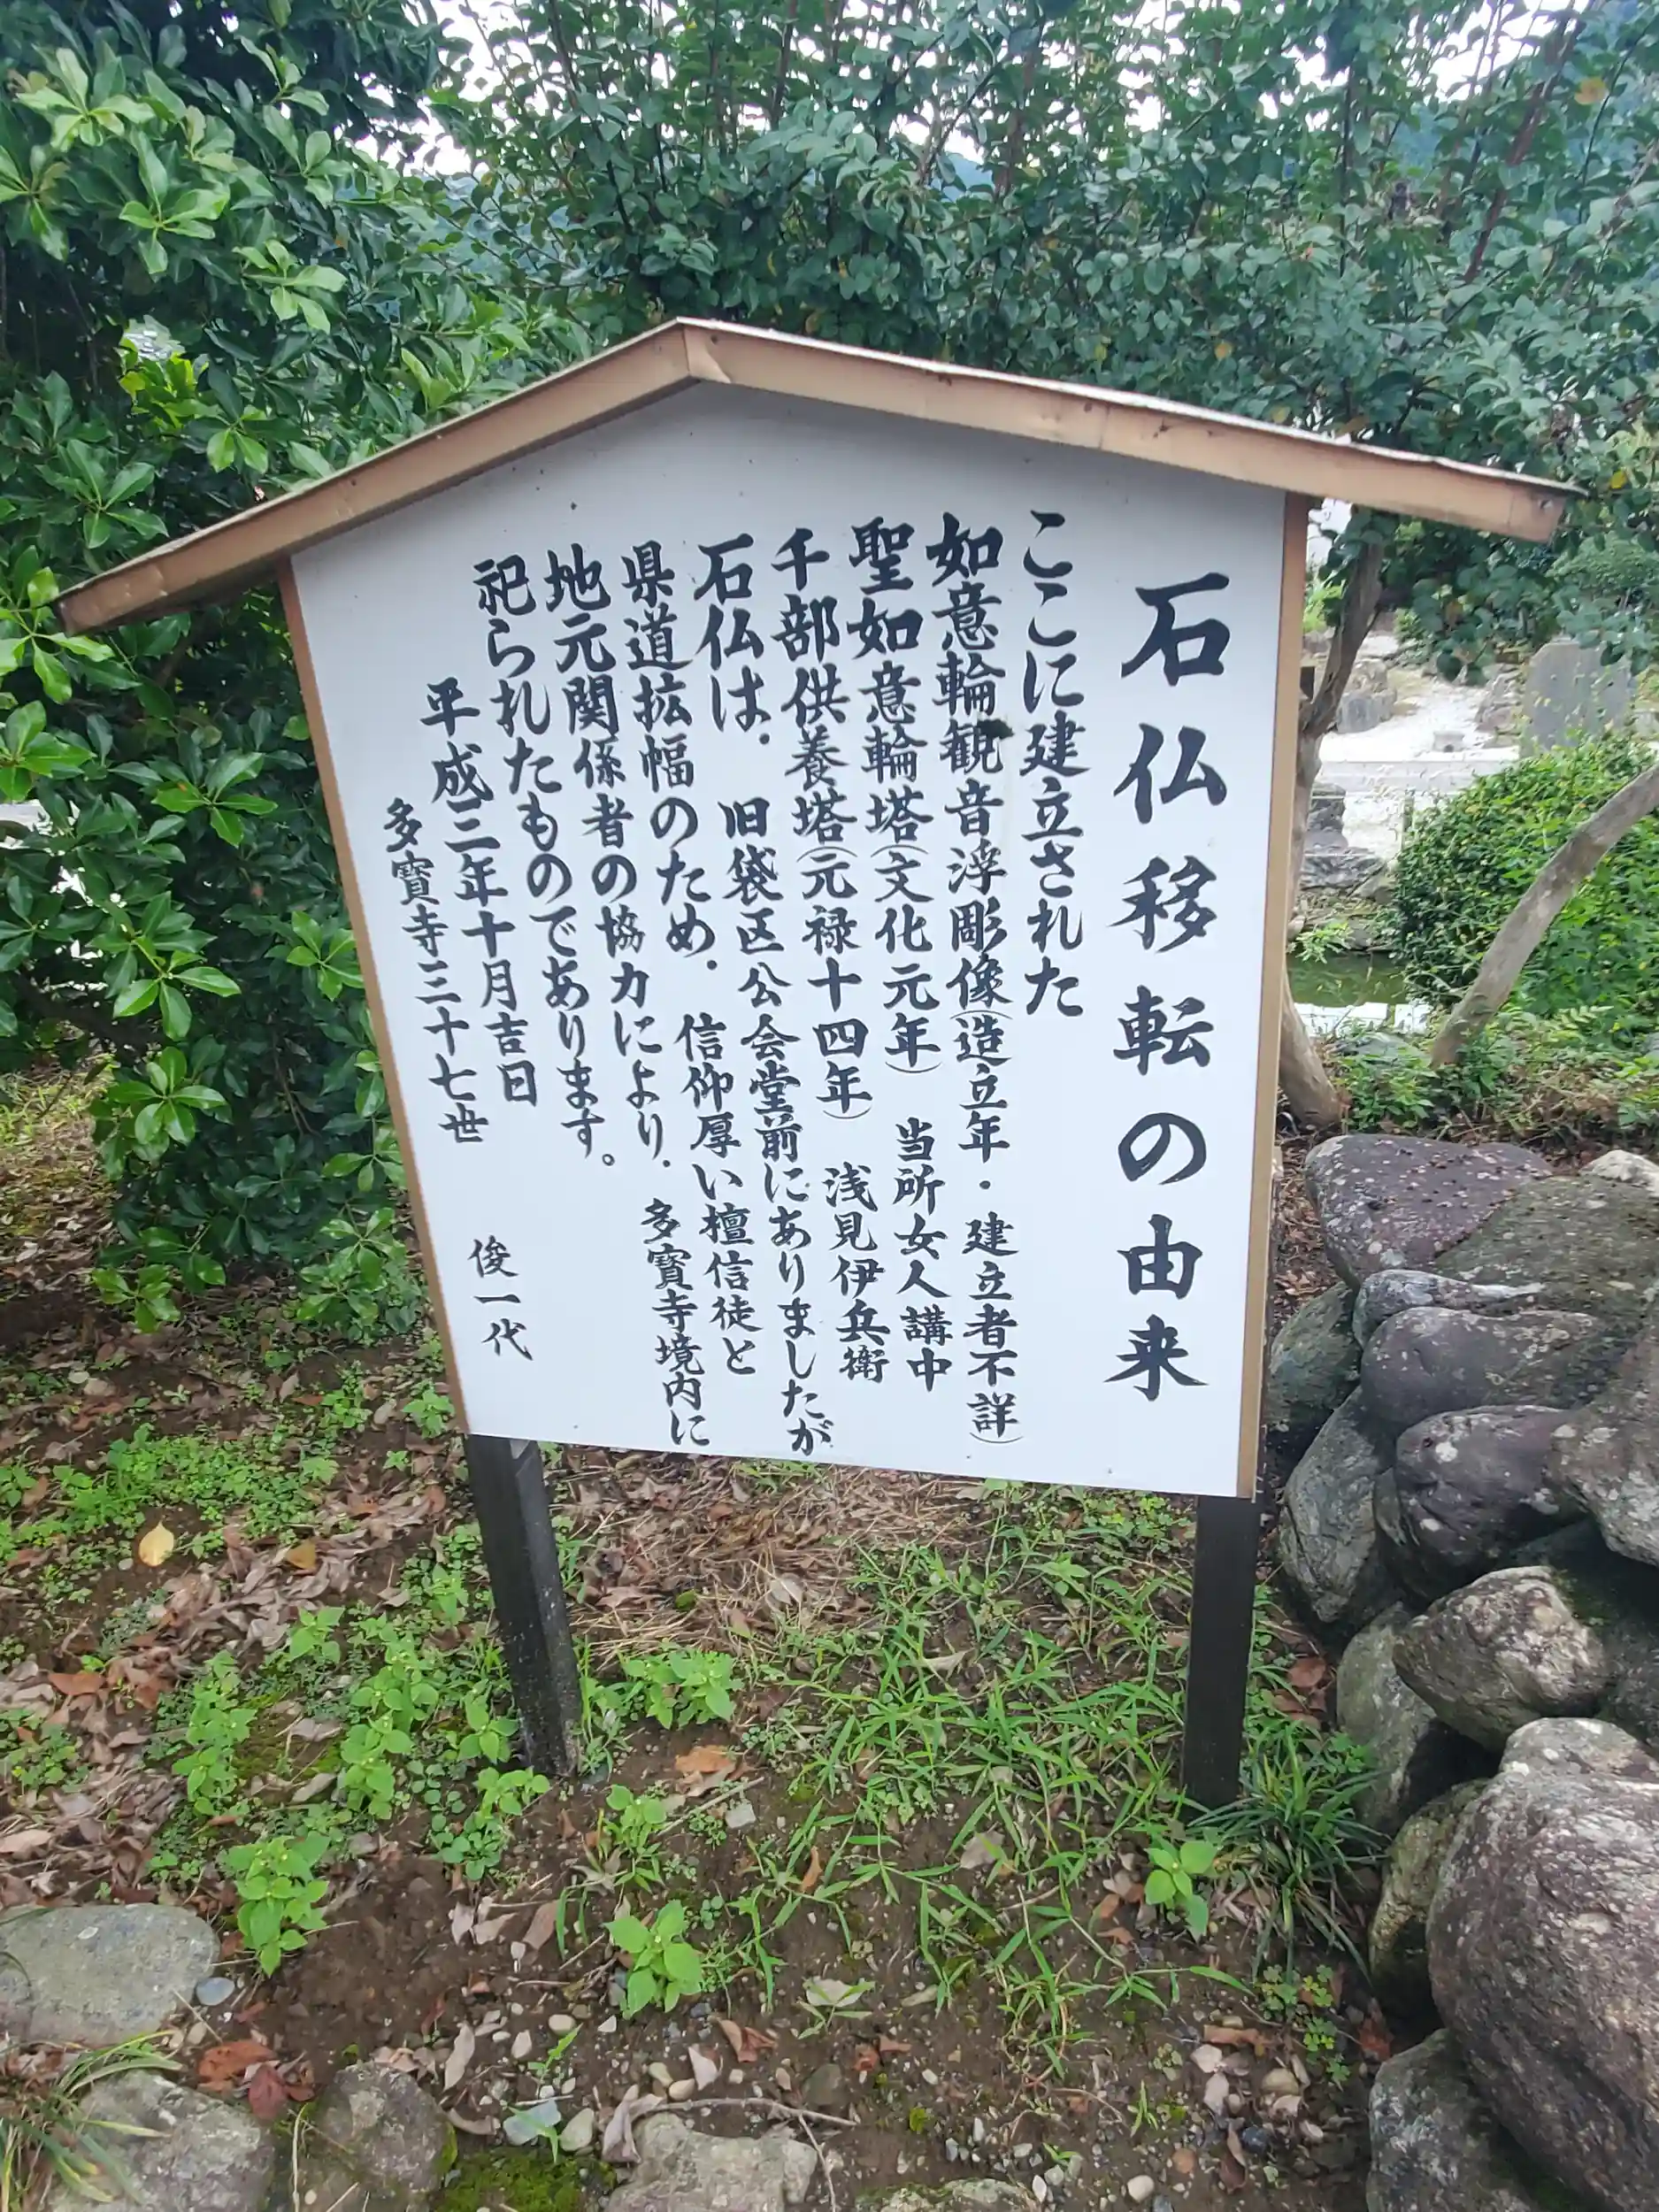 石仏移転の由来
ここに建立された
如意輪観音浮彫像(造立年・建立者不詳)
聖如意輪塔(文化元年) 当所女人講中
千部供養塔(元禄十四年) 浅見伊兵衛
石仏は、旧袋区公会堂前にありましたが
県道拡幅のため、信仰厚い檀信徒と
地元関係者の協力により、多寶寺境内に
祀られたものであります。
平成三年十月吉日
多寶寺三十七世 俊一代